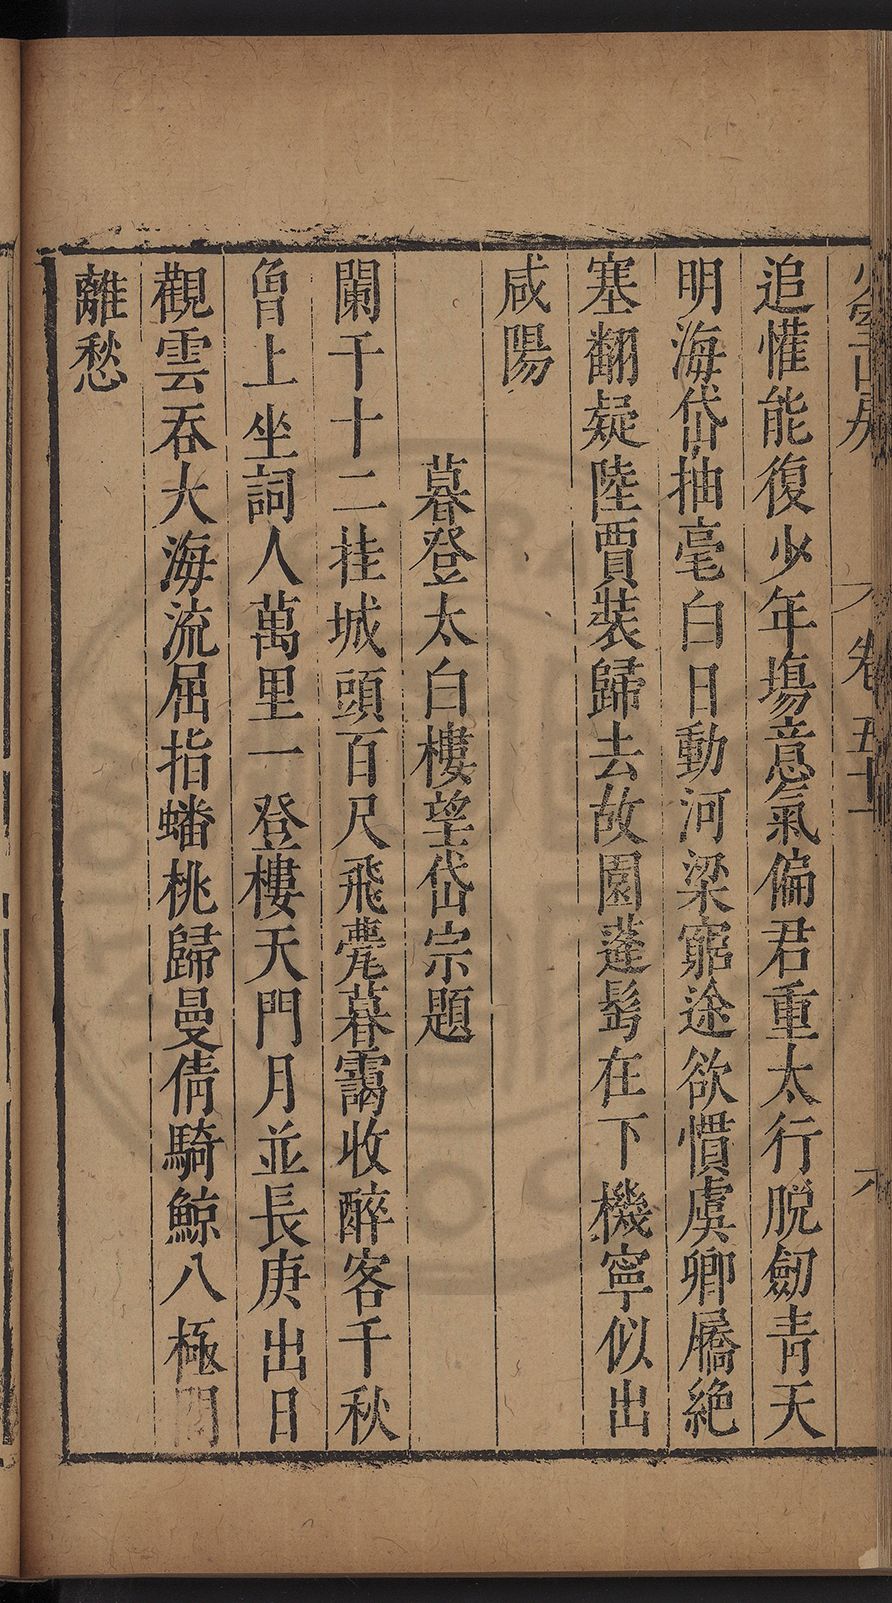 少室山房
卷五十
六
追懽能復少年塲意氣偏君重太行脱劒青天
明海岱抽毫白日動河梁窮途欲慣虞卿屩絶
塞翻疑陸賈裝歸去故園蓬髩在下機寧似出
咸陽
暮登太白樓望岱宗題
闌干十二挂城頭百尺飛甍暮靄收醉客千秋
曾上坐詞人萬里一登樓天門月並長庚出日
觀雲吞大海流屈指蟠桃歸曼倩騎鯨八極問
離愁